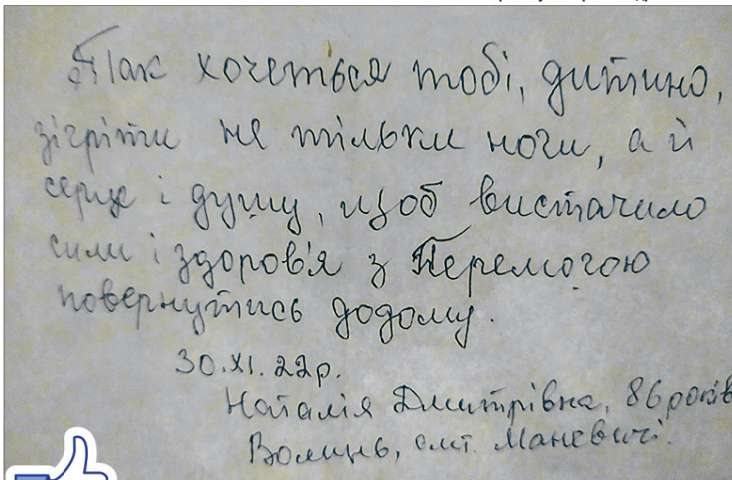 Так хочеться тобі, дитино,
зігріти не тільки ноги, а й
серце і душу, щоб вистачило
сили і здоров'я з Перемогою
повернутись додому.
30.XI.22р.
Наталія Дмитрівна, 86 років
Волинь, смт. Маневичі.